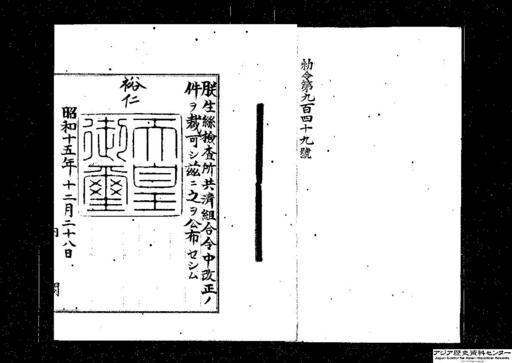 勅令第九百四十九號
朕生絲檢査所共濟組合令中改正ノ
件ヲ裁可シ茲ニ之ヲ公布セシム
裕仁
天皇
御璽
昭和十五年十二月二十八日
内閣
アジア歴史資料センター
Japan Center for Asian Historical Records